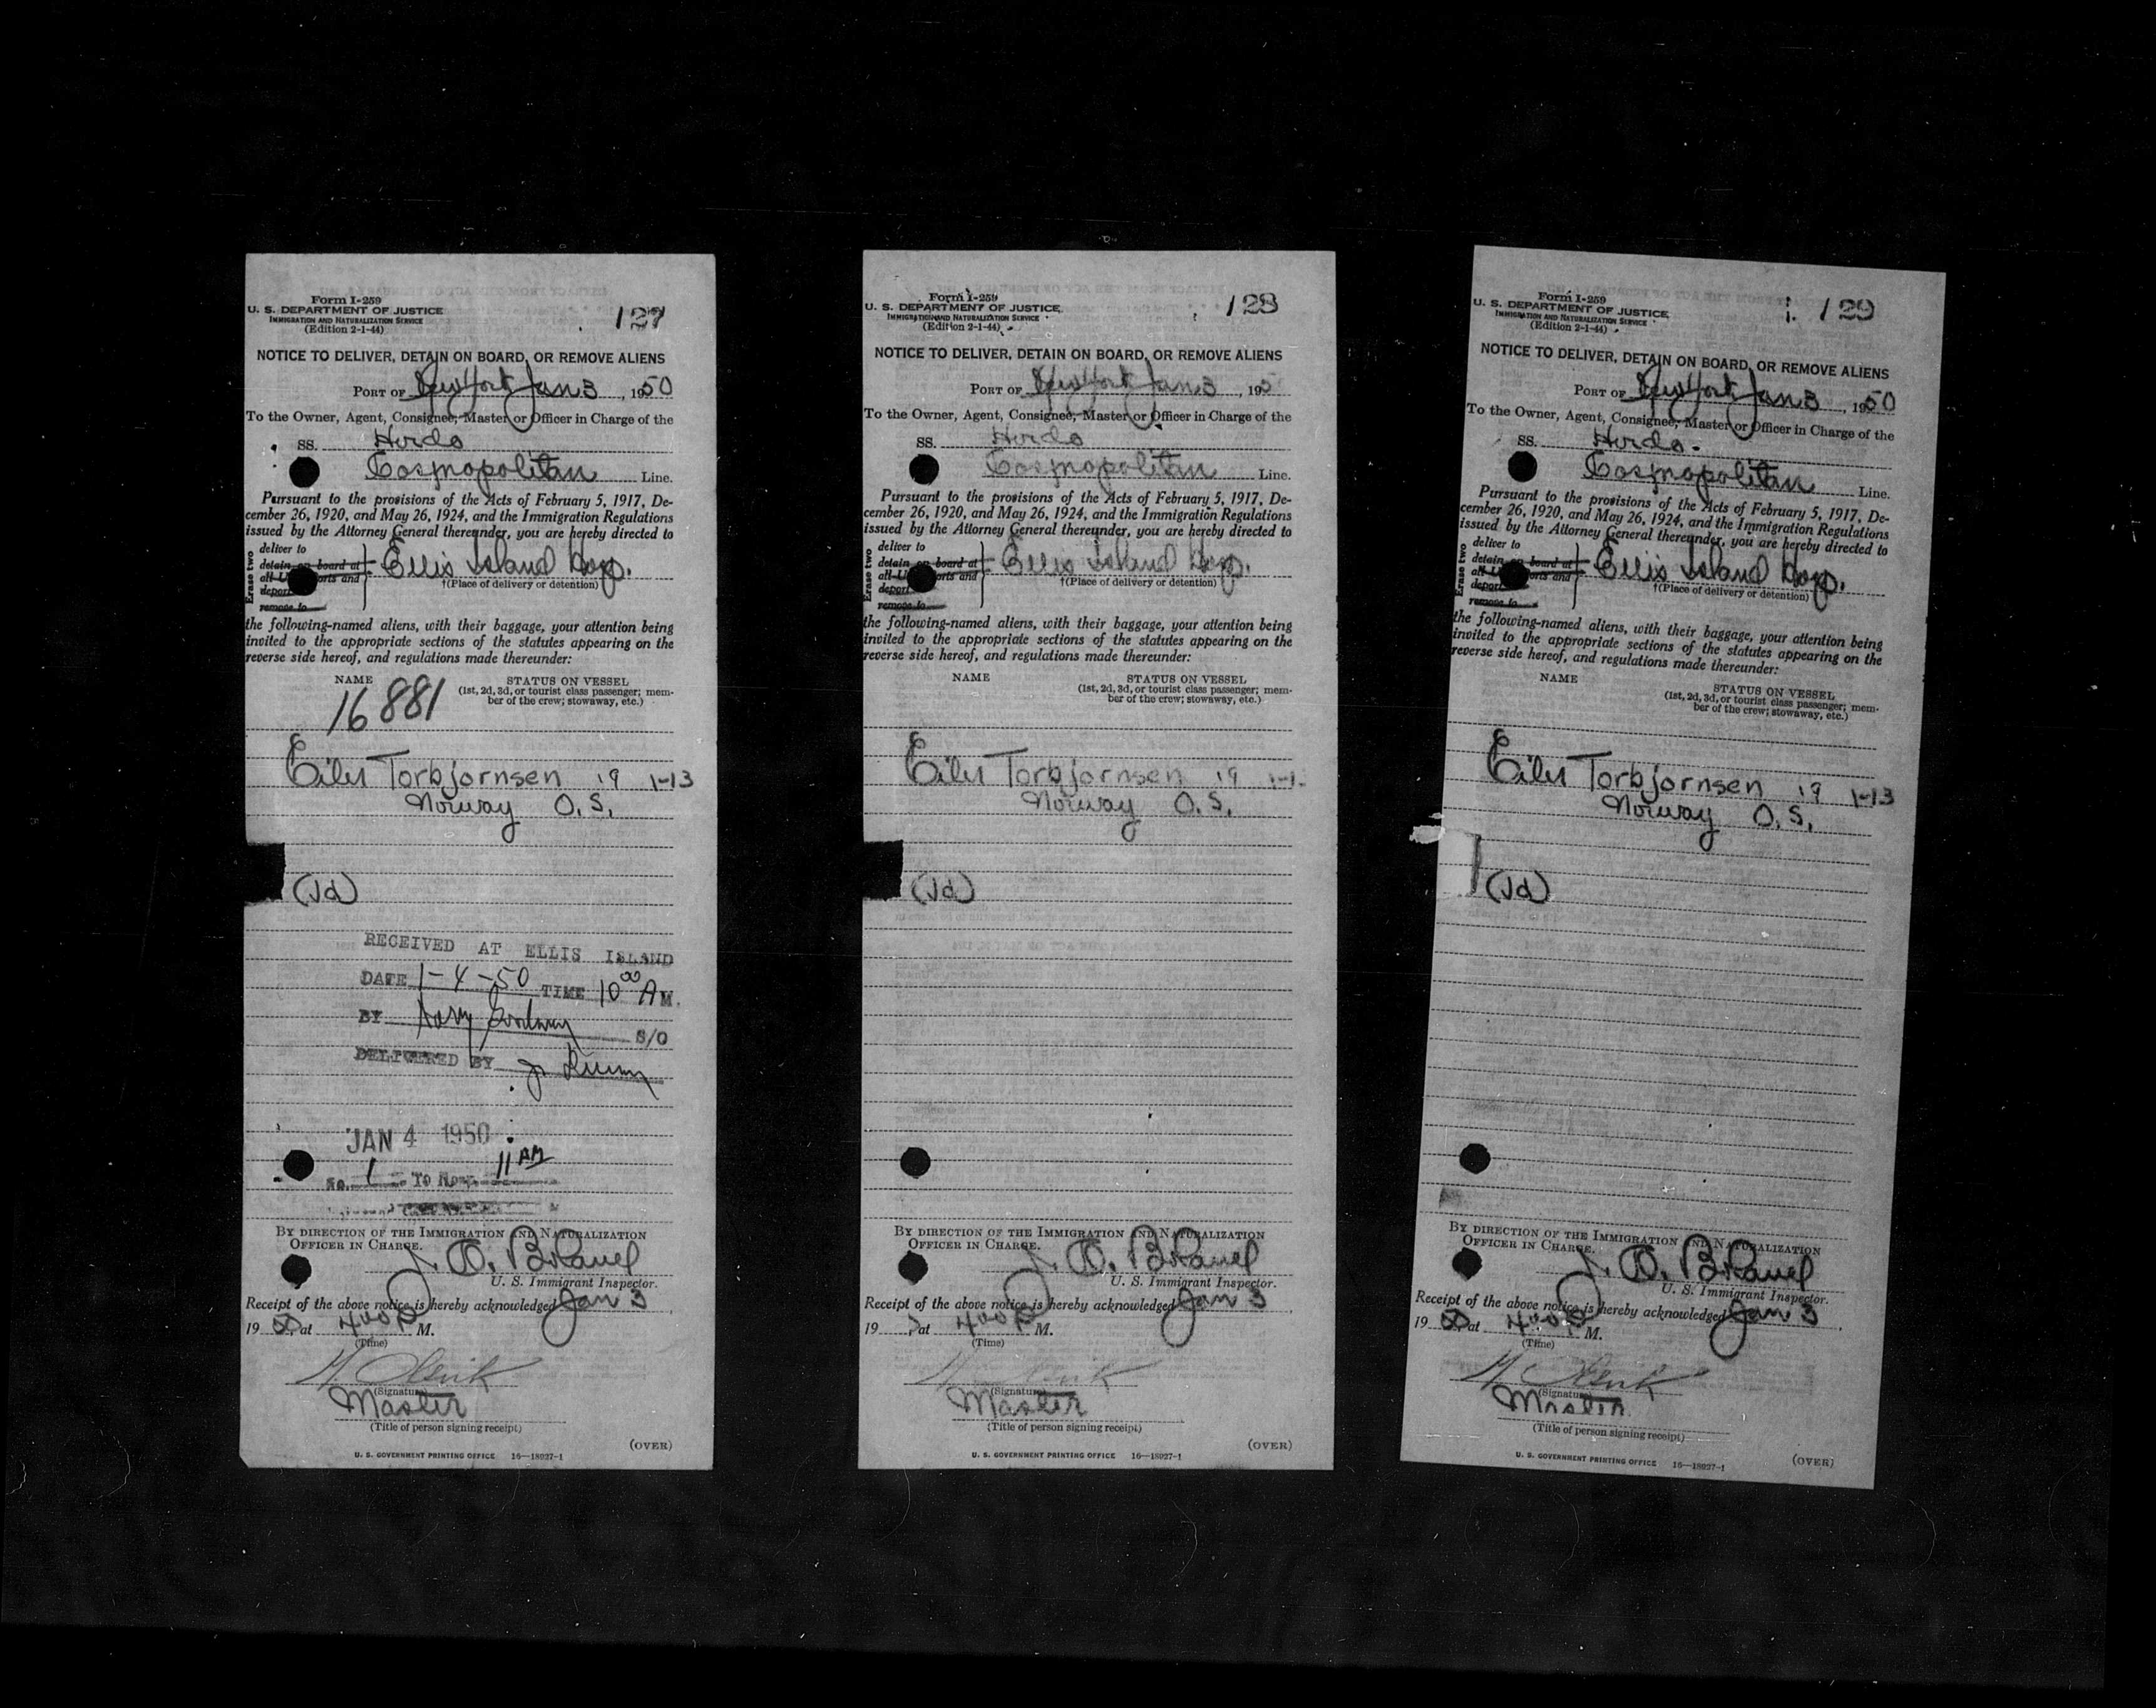 Form I-259
U. S. DEPARTMENT OF JUSTICE
IMMIGRATION AND NATURALIZATION SERVICE
(Edition 2-1-44)
127
NOTICE TO DELIVER, DETAIN ON BOARD, OR REMOVE ALIENS
PORT OF New York Jan 3, 1950
To the Owner, Agent, Consignee, Master or Officer in Charge of the
SS. Herdo
Cosmopolitan Line.
Pursuant to the provisions of the Acts of February 5, 1917, De-
cember 26, 1920, and May 26, 1924, and the Immigration Regulations
issued by the Attorney General thereunder, you are hereby directed to
Erase two
deliver to
detain on board at
all U orts and
deport
remove to
Ellis Island Hosp.
†(Place of delivery or detention)
the following-named aliens, with their baggage, your attention being
invited to the appropriate sections of the statutes appearing on the
reverse side hereof, and regulations made thereunder:
NAME STATUS ON VESSEL
(1st, 2d, 3d, or tourist class passenger; mem-
ber of the crew; stowaway, etc.)
16881
Eiler Torbjornsen 19 1-13
Norway O.S.
(Jd)
RECEIVED AT ELLIS ISLAND
DATE 1-4-50 TIME 10 00 AM.
BY S/O
DELIVERED BY
JAN 4 1950
No. 1 To Hosp. 11 AM
BY DIRECTION OF THE IMMIGRATION AND NATURALIZATION
OFFICER IN CHARGE.
J. O. Brauel
U. S. Immigrant Inspector.
Receipt of the above notice is hereby acknowledged Jan 3,
1950, at 4 00 P M.
(Time)
(Signature)
Master
(Title of person signing receipt)
(OVER)
U. S. GOVERNMENT PRINTING OFFICE 16—18027-1
Form I-259
U. S. DEPARTMENT OF JUSTICE
IMMIGRATION AND NATURALIZATION SERVICE
(Edition 2-1-44)
128
NOTICE TO DELIVER, DETAIN ON BOARD, OR REMOVE ALIENS
PORT OF New York Jan 3, 195
To the Owner, Agent, Consignee, Master or Officer in Charge of the
SS. Herdo
Cosmopolitan Line.
Pursuant to the provisions of the Acts of February 5, 1917, De-
cember 26, 1920, and May 26, 1924, and the Immigration Regulations
issued by the Attorney General thereunder, you are hereby directed to
Erase two
deliver to
detain on board at
all U orts and
deport
remove to
Ellis Island Hosp.
†(Place of delivery or detention)
the following-named aliens, with their baggage, your attention being
invited to the appropriate sections of the statutes appearing on the
reverse side hereof, and regulations made thereunder:
NAME STATUS ON VESSEL
(1st, 2d, 3d, or tourist class passenger; mem-
ber of the crew; stowaway, etc.)
Eiler Torbjornsen 19 1-1
Norway O.S.
(Jd)
BY DIRECTION OF THE IMMIGRATION AND NATURALIZATION
OFFICER IN CHARGE.
J. O. Brauel
U. S. Immigrant Inspector.
Receipt of the above notice is hereby acknowledged Jan 3,
19 , at 4 00 P M.
(Time)
(Signature)
Master
(Title of person signing receipt)
(OVER)
U. S. GOVERNMENT PRINTING OFFICE 16—18027-1
Form I-259
U. S. DEPARTMENT OF JUSTICE
IMMIGRATION AND NATURALIZATION SERVICE
(Edition 2-1-44)
129
NOTICE TO DELIVER, DETAIN ON BOARD, OR REMOVE ALIENS
PORT OF New York Jan 3, 1950
To the Owner, Agent, Consignee, Master or Officer in Charge of the
SS. Herdo
Cosmopolitan Line.
Pursuant to the provisions of the Acts of February 5, 1917, De-
cember 26, 1920, and May 26, 1924, and the Immigration Regulations
issued by the Attorney General thereunder, you are hereby directed to
Erase two
deliver to
detain on board at
all U orts and
deport
remove to
Ellis Island Hosp.
†(Place of delivery or detention)
the following-named aliens, with their baggage, your attention being
invited to the appropriate sections of the statutes appearing on the
reverse side hereof, and regulations made thereunder:
NAME STATUS ON VESSEL
(1st, 2d, 3d, or tourist class passenger; mem-
ber of the crew; stowaway, etc.)
Eiler Torbjornsen 19 1-13
Norway O.S.
(Jd)
BY DIRECTION OF THE IMMIGRATION AND NATURALIZATION
OFFICER IN CHARGE.
J. O. Brauel
U. S. Immigrant Inspector.
Receipt of the above notice is hereby acknowledged Jan 3,
1950 at 4 00 P M.
(Time)
(Signature)
Master
(Title of person signing receipt)
(OVER)
U. S. GOVERNMENT PRINTING OFFICE 16—18027-1